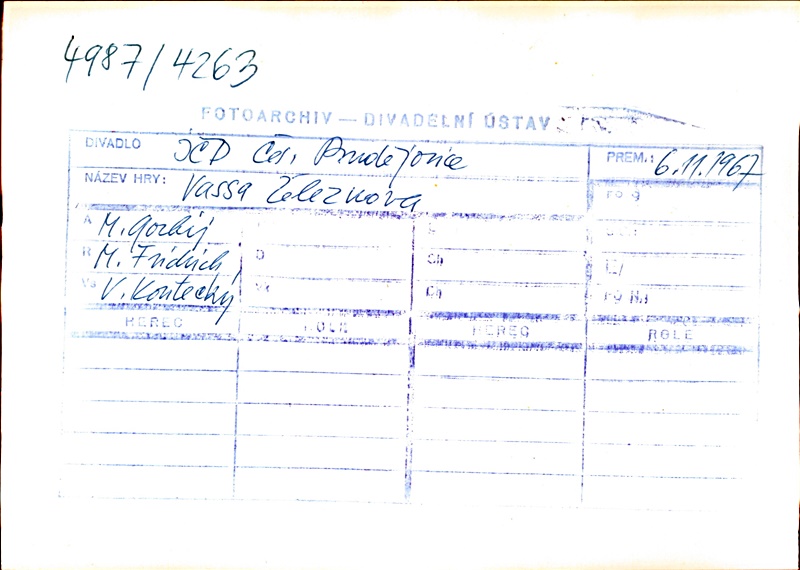 4987/4263
FOTOARCHIV — DIVADELNÍ ÚSTAV
DIVADLO JČD Čes. Budějovice PREM.: 6.11.1967
NÁZEV HRY: Vassa Železnova
A M. Gorkij
R M. Fridrich
V. Koutecký
HEREC ROLE HEREC ROLE